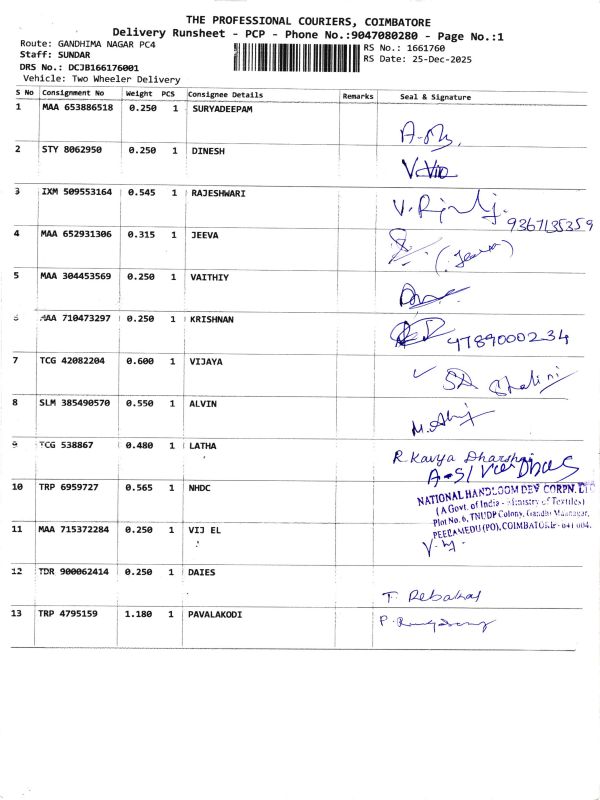 THE PROFESSIONAL COURIERS, COIMBATORE
Delivery Runsheet - PCP - Phone No.:9047080280 - Page No.:1
Route: GANDHIMA NAGAR PC4
Staff: SUNDAR
DRS No.: DCJB166176001
Vehicle: Two Wheeler Delivery
RS No.: 1661760
RS Date: 25-Dec-2025
S No Consignment No Weight PCS Consignee Details Remarks Seal & Signature
1 MAA 653886518 0.250 1 SURYADEEPAM
2 STY 8062950 0.250 1 DINESH
3 IXM 509553164 0.545 1 RAJESHWARI
9367135359
4 MAA 652931306 0.315 1 JEEVA
5 MAA 304453569 0.250 1 VAITHIY
6 MAA 710473297 0.250 1 KRISHNAN
9789000234
7 TCG 42082204 0.600 1 VIJAYA
Shalini
8 SLM 385490570 0.550 1 ALVIN
9 TCG 538867 0.480 1 LATHA
R. Kavya Dharshni
10 TRP 6959727 0.565 1 NHDC
NATIONAL HANDLOOM DEV CORPN. LTD
(A Govt. of India - Ministry of Textiles)
Plot No. 6, TNUDP Colony, Gandhi Maanagar,
PEELAMEDU (PO), COIMBATORE - 641 004.
11 MAA 715372284 0.250 1 VIJ EL
12 TDR 900062414 0.250 1 DAIES
T. Rebakah
13 TRP 4795159 1.180 1 PAVALAKODI